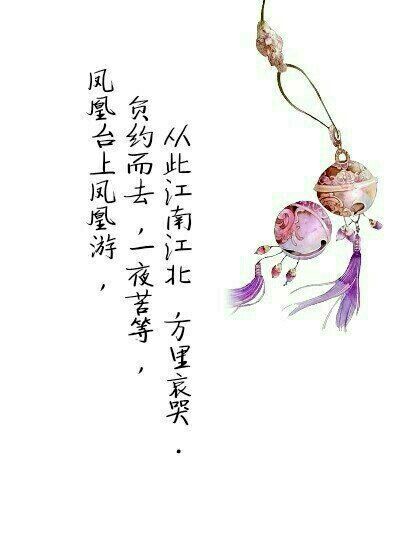 凤凰台上凤凰游，
负约而去，一夜苦等，
从此江南江北，万里哀哭.